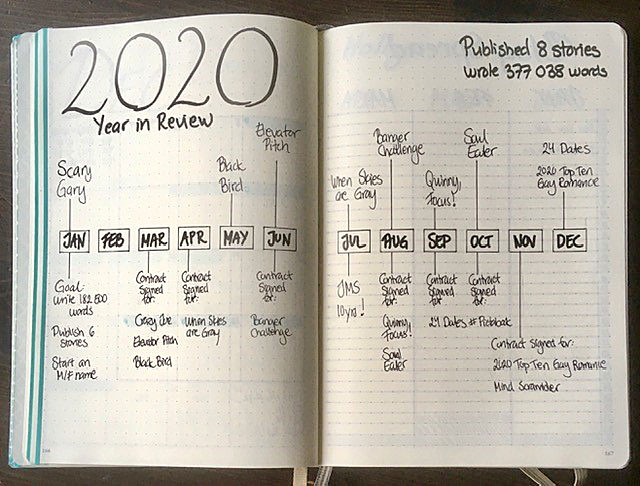 2020
Year in Review
Published 8 stories
wrote 377 038 words
Scary
Gary
Black
Bird
Elevator
Pitch
When Skies
are Gray
Banger
Challenge
Quinny,
Focus!
Soul
Eater
24 Dates
2020 Top Ten
Gay Romance
JAN
FEB
MAR
APR
MAY
JUN
JUL
AUG
SEP
OCT
NOV
DEC
Goal:
write 182 500
words
Publish 6
stories
Start an
M/F name
Contract
Signed
for:
Crazy Joe
Elevator Pitch
Black Bird
Contract
Signed
for:
When Skies
are Gray
Contract
Signed
for:
Banger
Challenge
JMS
10yrs!
Contract
Signed
for:
Quinny,
Focus!
Soul
Eater
Contract
Signed
for:
24 Dates
Contract
Signed
for:
Contract signed for:
2020 Top Ten Gay Romance
Mind
166
167